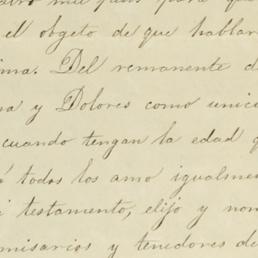 el objeto de que hablar
ima. Del remanente d
na y Dolores como unic
cuando tengan la edad q
á todos los amo igualme
i testamento, elijo y nom
misarios y tenedores de